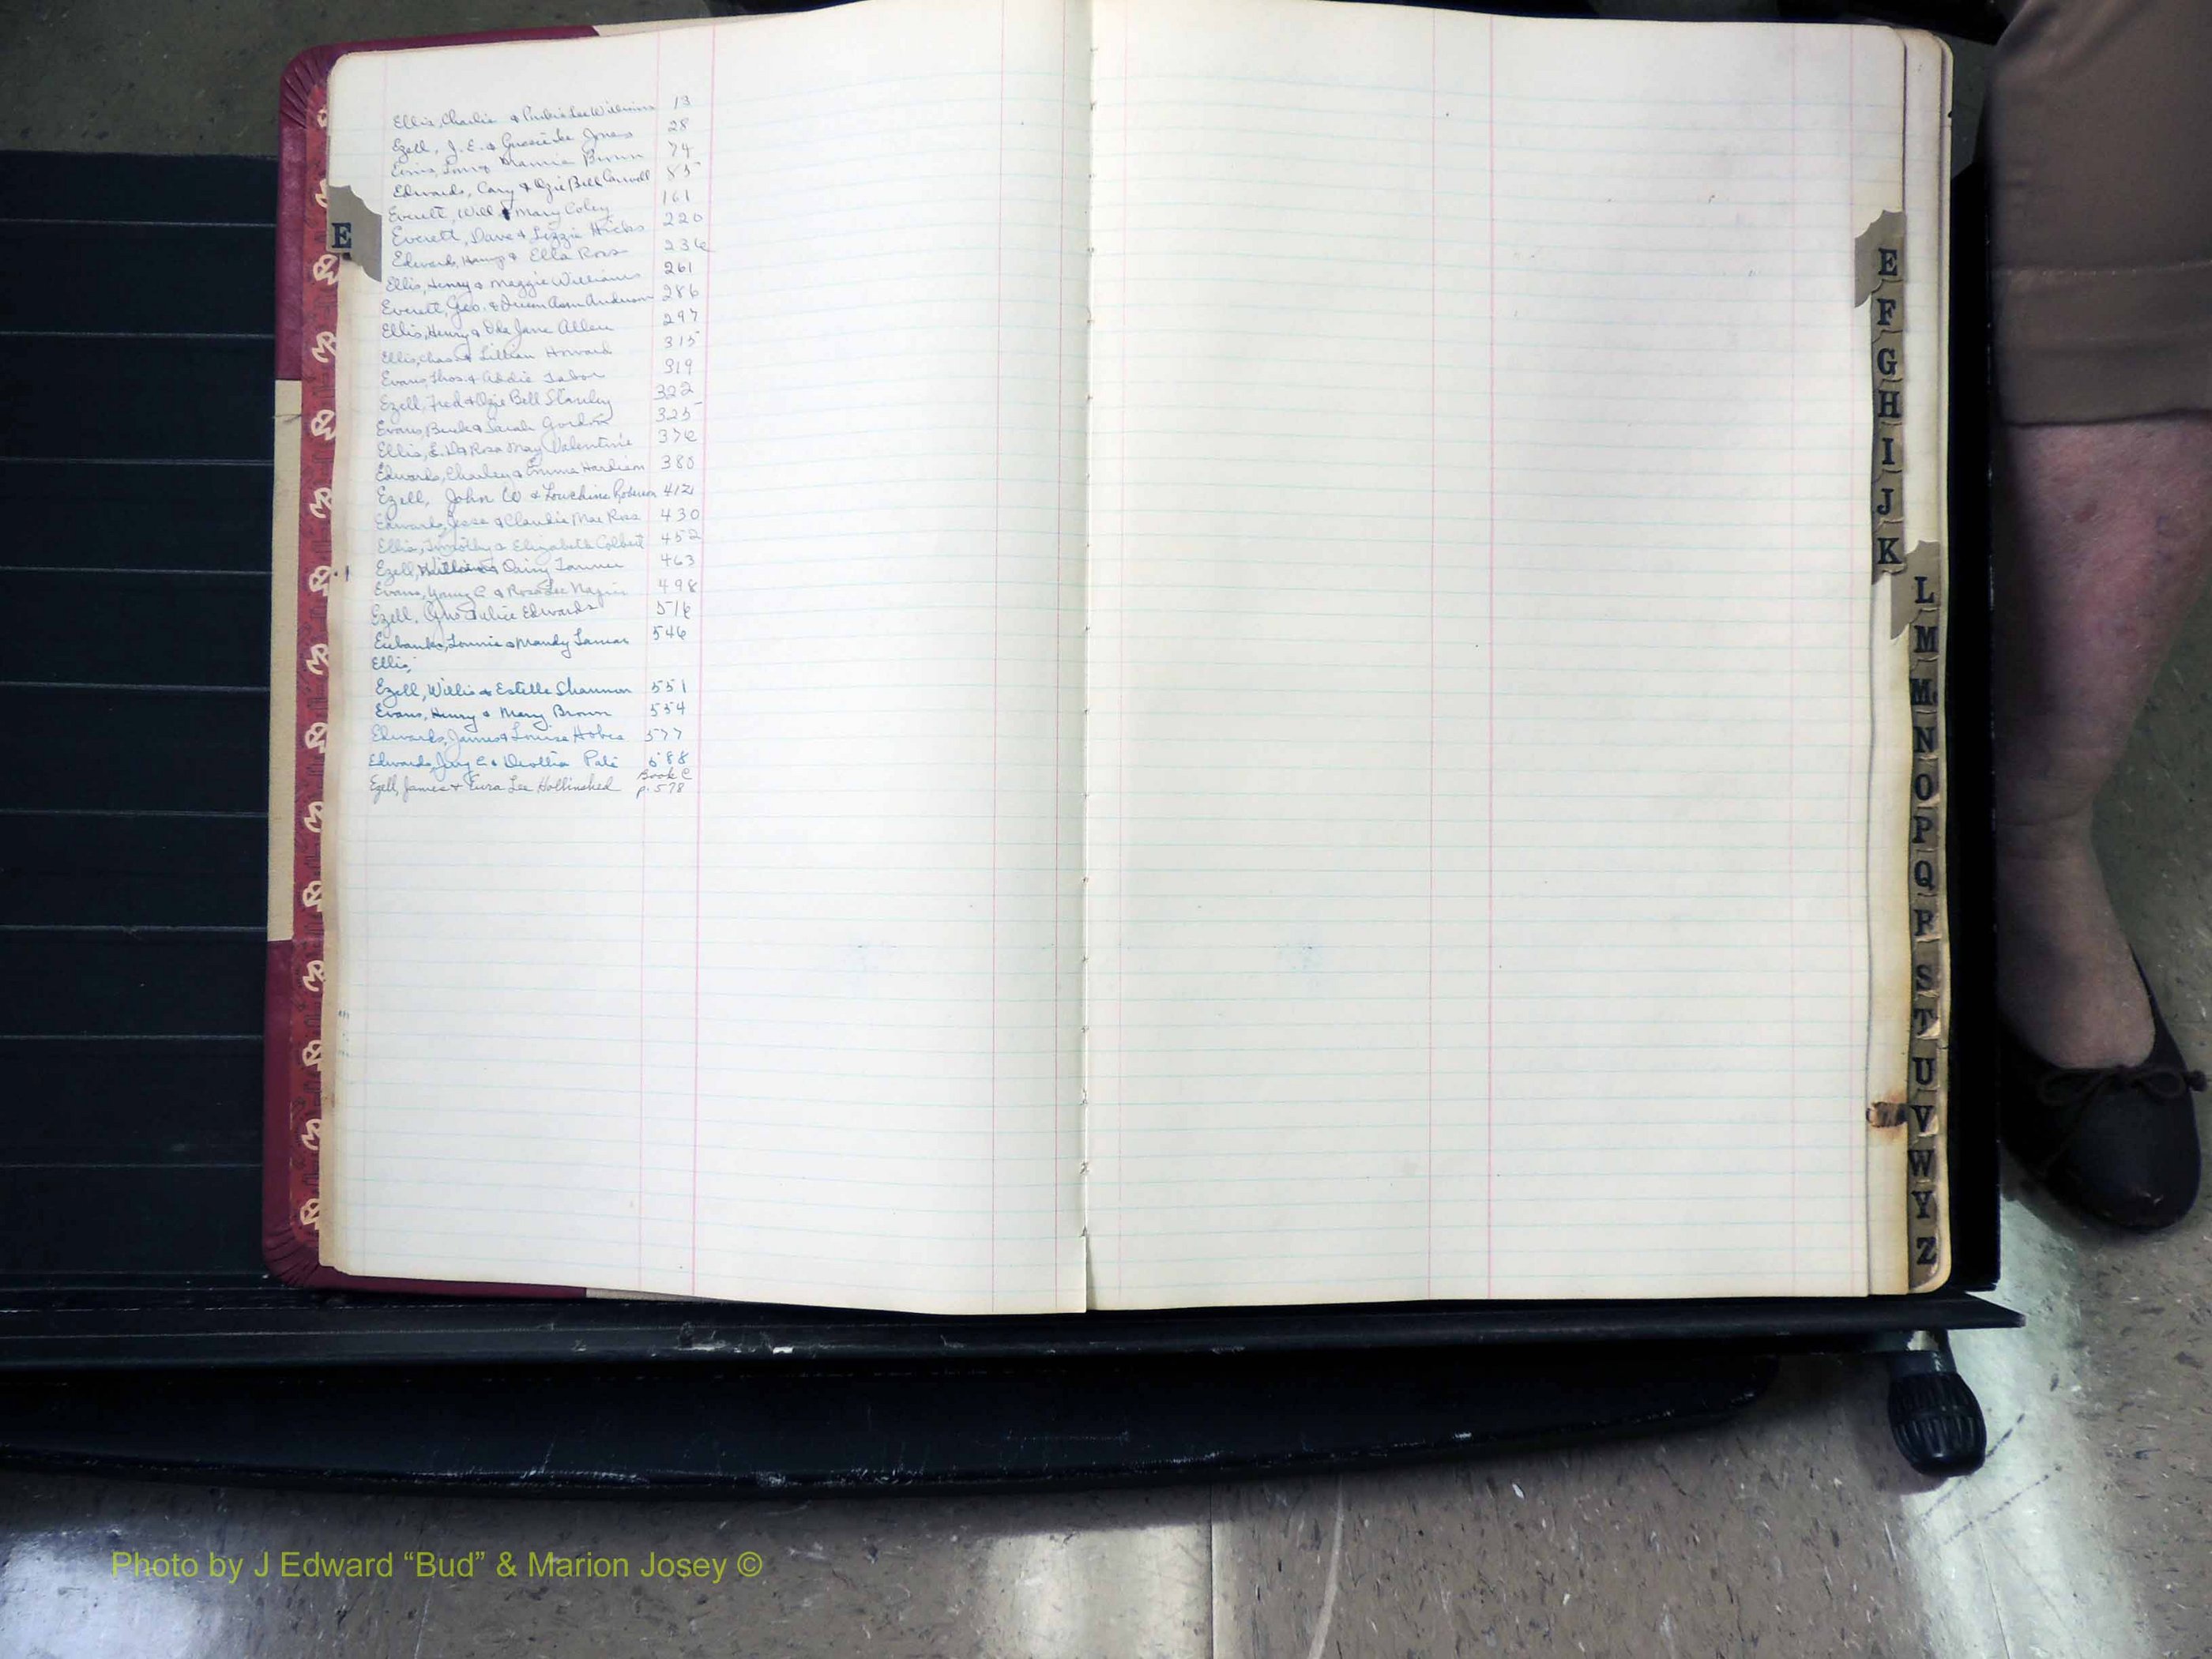 Ellis, Charlie & Lee Williams 13
Ezell, J. E. & Gussie Lee Jones 28
& Mamie Brown 74
Edwards, Cary & Ozie Bell Carswell 85
Everett, Will & Mary Coley 161
Everett, Dave & Lizzie Hicks 220
Edwards, & Ella Ross 236
Ellis, Henry & Maggie Williams 261
Everett, Geo. & Queen Ann Anderson 286
Ellis, Henry & Oda Jane Allen 297
Ellis, Chas & Lillian Howard 315
Evans, Thos. & Addie Tabor 319
Ezell, Fred & Ozie Bell Stanley 322
Evans, Buck & Sarah Gordon 325
Ellis, E. D & Rosa May Valentine 376
Edwards, Charley & Emma Hardison 380
Ezell, John W & Roberson 412
Edwards, Jesse & Claudie Mae Ross 430
Ellis, Timothy & Elizabeth Colbert 452
Ezell, William & Daisy Tanner 463
Evans, Young C & Rosa Lee 498
Ezell, & Alice Edwards 516
Eubanks, Lonnie & Mandy Lamar 546
Ellis,
Ezell, Willis & Estelle Shannon 551
Evans, Henry & Mary Brown 554
Edwards, James & Louise Hobbs 577
Edwards, & Pate 588
Ezell, James & Eura Lee Hollinshed Book C
p. 578
E
E
F
G
H
I
J
K
L
M
Mc
N
O
P
Q
R
S
T
U
V
W
Y
Z
Photo by J Edward “Bud” & Marion Josey ©